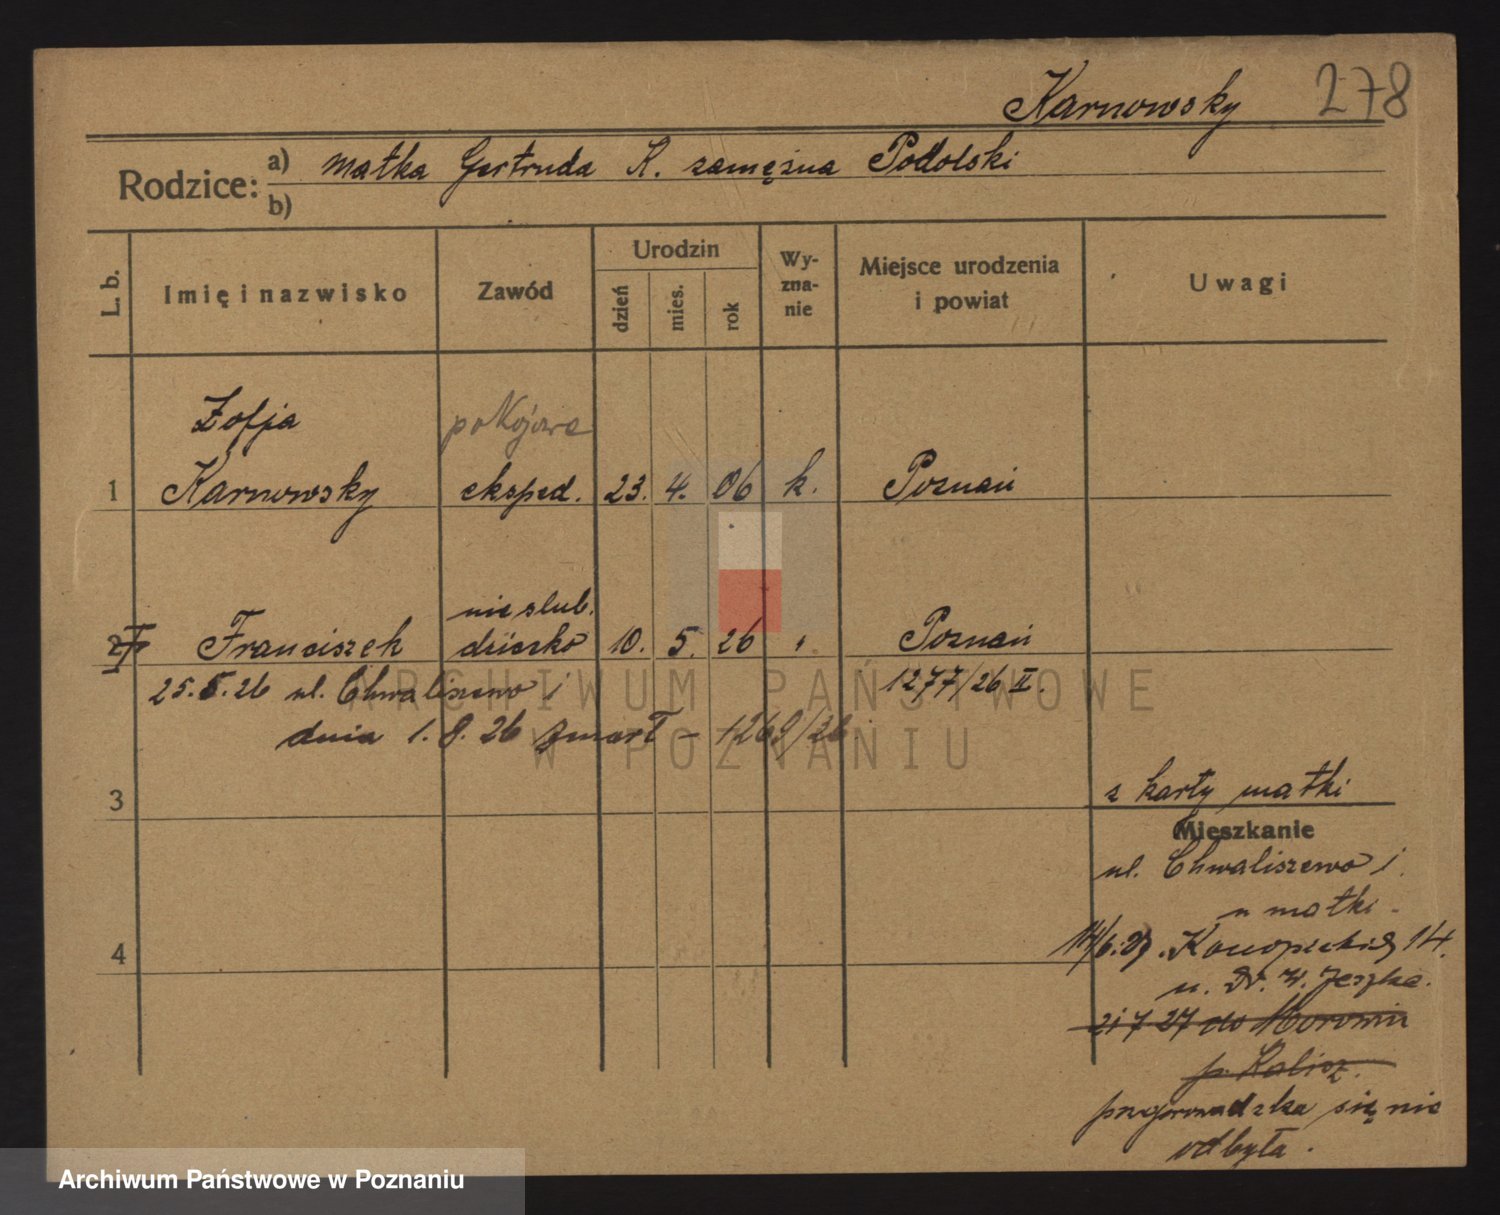 Karnowsky 278
Rodzice: a) matka Gertruda K. zamężna Podolski
b)
L. b. Imię i nazwisko Zawód Urodzin dzień mies. rok Wy-zna-nie Miejsce urodzenia i powiat Uwagi
Zofja pokojowa
1 Karnowsky eksped. 23. 4. 06 k. Poznań
nieślub.
2 Franciszek dziecko 10. 5. 26 " Poznań
25.5.26 ul. Chwaliszewo 1277/26 II.
dnia 1. 8. 26 zmarł – 1269/26
3 z karty matki
Mieszkanie
ul. Chwaliszewo
u matki
4 14.
u. Dr. W. Jeszke.
21 7 27 do
p. Kalisz.
przeprowadzka się nie
odbyła.
ARCHIWUM PAŃSTWOWE
W POZNANIU
Archiwum Państwowe w Poznaniu